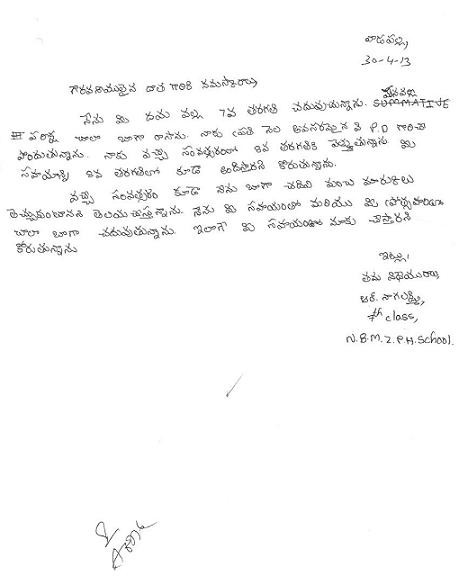 వాడపల్లి,
30-4-13
గౌరవనీయులైన దాత గారికి నమస్కారాలు,
నేను మీ దయ వల్ల 7వ తరగతి చదువుచున్నాను. SUMMATIVE
III పరీక్ష చాలా బాగా రాసాను. నాకు ప్రతి నెల అవసరమైనవి P.D గారిచే
పొందుతున్నాను. నాకు వచ్చే సంవత్సరంలో 8వ తరగతికి వెళ్ళుతున్నాను. మీ
సహాయాన్ని 8వ తరగతిలో కూడా అందిస్తారని కోరుతున్నాను.
వచ్చే సంవత్సరం కూడా నేను బాగా చదివి మంచి మార్కులు
తెచ్చుకుంటానని తెలియచేస్తున్నాను. నేను మీ సహాయంతో మరియు మీ ప్రోత్సాహంతో
చాలా బాగా చదువుచున్నాను. ఇలాగే మీ సహాయం మాకు చేస్తారని
కోరుతున్నాను
ఇట్లు,
తమ విధేయురాలు,
ఆర్. నాగలక్ష్మి,
7th class,
N.B.M.Z.P.H.School.